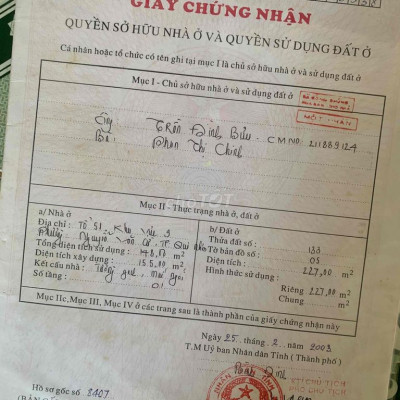 GIẤY CHỨNG NHẬN
QUYỀN SỞ HỮU NHÀ Ở VÀ QUYỀN SỬ DỤNG ĐẤT Ở
Cá nhân hoặc tổ chức có tên ghi tại mục I là chủ sở hữu nhà ở và sử dụng đất ở
Mục I - Chủ sở hữu nhà ở và sử dụng đất ở
Ông Trần Đình Bửu - CMND: 211889124
Bà Phan Thị Chinh
Mục II - Thực trạng nhà ở, đất ở
a/ Nhà ở
Địa chỉ : Tổ 51, Khu vực 9
Phường Nguyễn
Tổng diện tích sử dụng: m2
Diện tích xây dựng : 155,00 m2
Kết cấu nhà : Tường gạch, mái ngói
Số tầng : 01
b/ Đất ở
Thửa đất số : 133
Tờ bản đồ số : 05
Diện tích : 227,00 m2
Hình thức sử dụng :
Riêng 227,00 m2
Chung m2
Mục IIc, Mục III, Mục IV ở các trang sau là thành phần của giấy chứng nhận này
Ngày 25 tháng 2 năm 2003
T.M Uỷ ban Nhân dân Tỉnh ( Thành phố )
Bình Định
Hồ sơ gốc số 8407